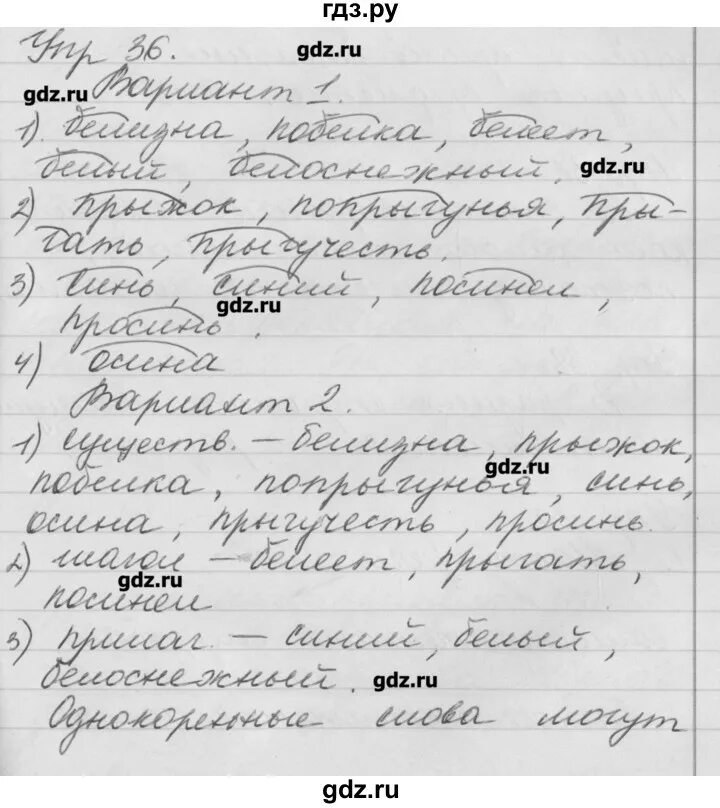 гдз.ру
Упр 36. gdz.ru
gdz.ru Вариант 1.
1). белизна, побелка, белеет,
белый, белоснежный. gdz.ru
2) прыжок, попрыгунья, пры-
гать, прыгучесть.
3) синь, синий, посинел,
gdz.ru
просинь.
4) осина
Вариант 2.
1) существ. – белизна, прыжок,
gdz.ru
побелка, попрыгунья, синь,
осина, прыгучесть, просинь.
2) глагол – белеет, прыгать,
gdz.ru
посинел
3) прилаг. – синий, белый,
белоснежный. gdz.ru
Однокоренные слова могут
gdz.ru